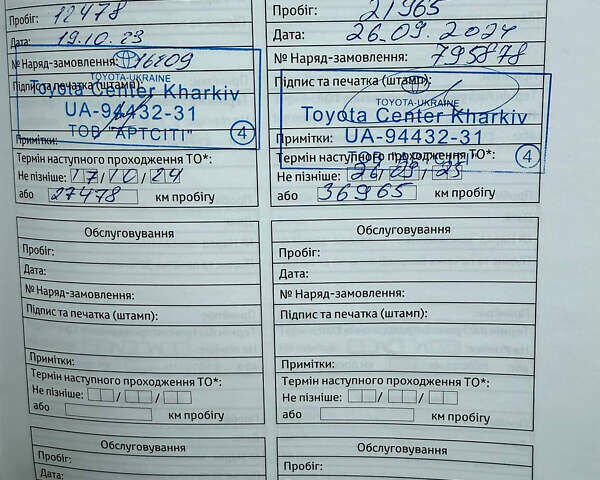 Пробіг: 12478
Дата: 19.10.23
№ Наряд-замовлення: 16809
Підпис та печатка (штамп):
TOYOTA-UKRAINE
Toyota Center Kharkiv
UA-94432-31
ТОВ "АРТСІТІ"
4
Примітки:
Термін наступного проходження ТО*:
Не пізніше: 17/10/24
або 27478 км пробігу
Пробіг: 21965
Дата: 26.09.2024
№ Наряд-замовлення: 795878
Підпис та печатка (штамп):
TOYOTA-UKRAINE
Toyota Center Kharkiv
UA-94432-31
4
Примітки:
Термін наступного проходження ТО*:
Не пізніше: 26/09/25
або 36965 км пробігу
Обслуговування
Пробіг:
Дата:
№ Наряд-замовлення:
Підпис та печатка (штамп):
Примітки:
Термін наступного проходження ТО*:
Не пізніше: / /
або км пробігу
Обслуговування
Пробіг:
Дата:
№ Наряд-замовлення:
Підпис та печатка (штамп):
Примітки:
Термін наступного проходження ТО*:
Не пізніше: / /
або км пробігу
Обслуговування
Пробіг:
Дата:
Обслуговування
Пробіг: